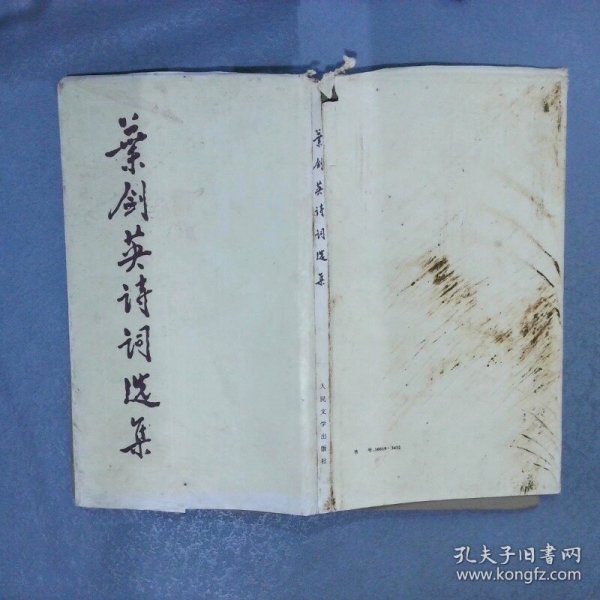 葉剑英诗词选集
葉剑英诗词选集
人民文学出版社
书 号:10019·3402
孔夫子旧书网
www.kongfz.com